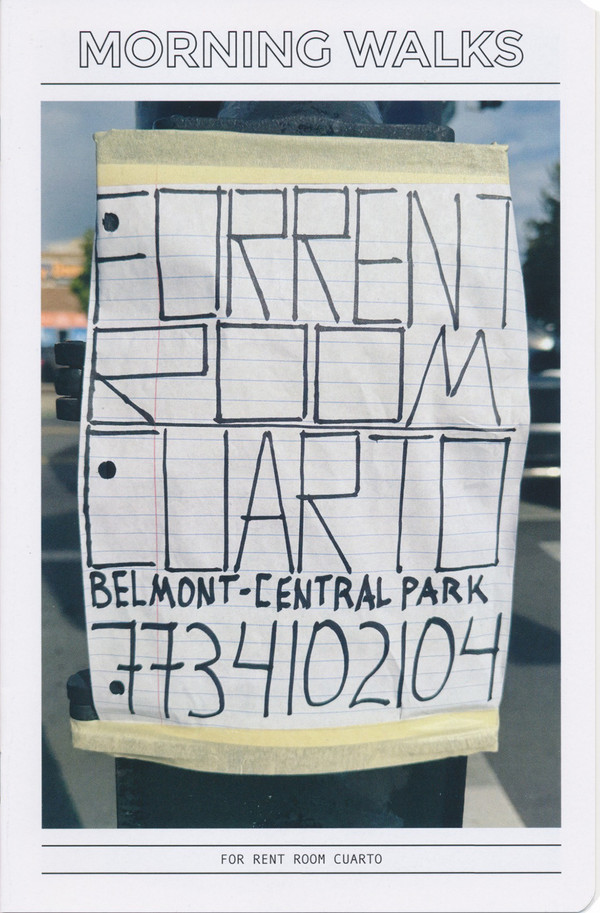 MORNING WALKS
FOR RENT
ROOM
CUARTO
BELMONT-CENTRAL PARK
7734102104
FOR RENT ROOM CUARTO